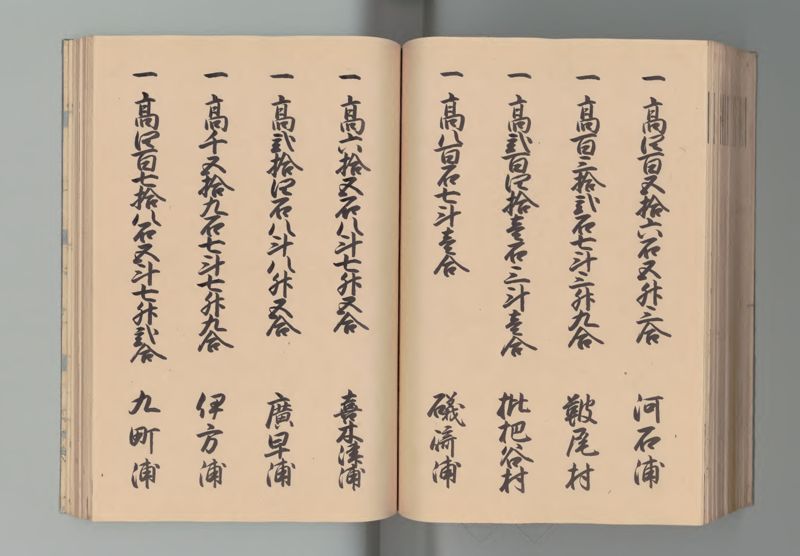 一 高四百五拾六石五升三合 河石浦
一 高百三拾弐石七斗三升九合 鞁尾村
一 高弐百四拾壱石三斗壱合 枇杷谷村
一 高八百石七斗壱合 礒崎浦
一 高六拾五石八斗七升五合 喜木津浦
一 高弐拾四石八斗八升五合 廣早浦
一 高千五拾九石七斗七升九合 伊方浦
一 高四百七拾八石五斗七升弐合 九町浦